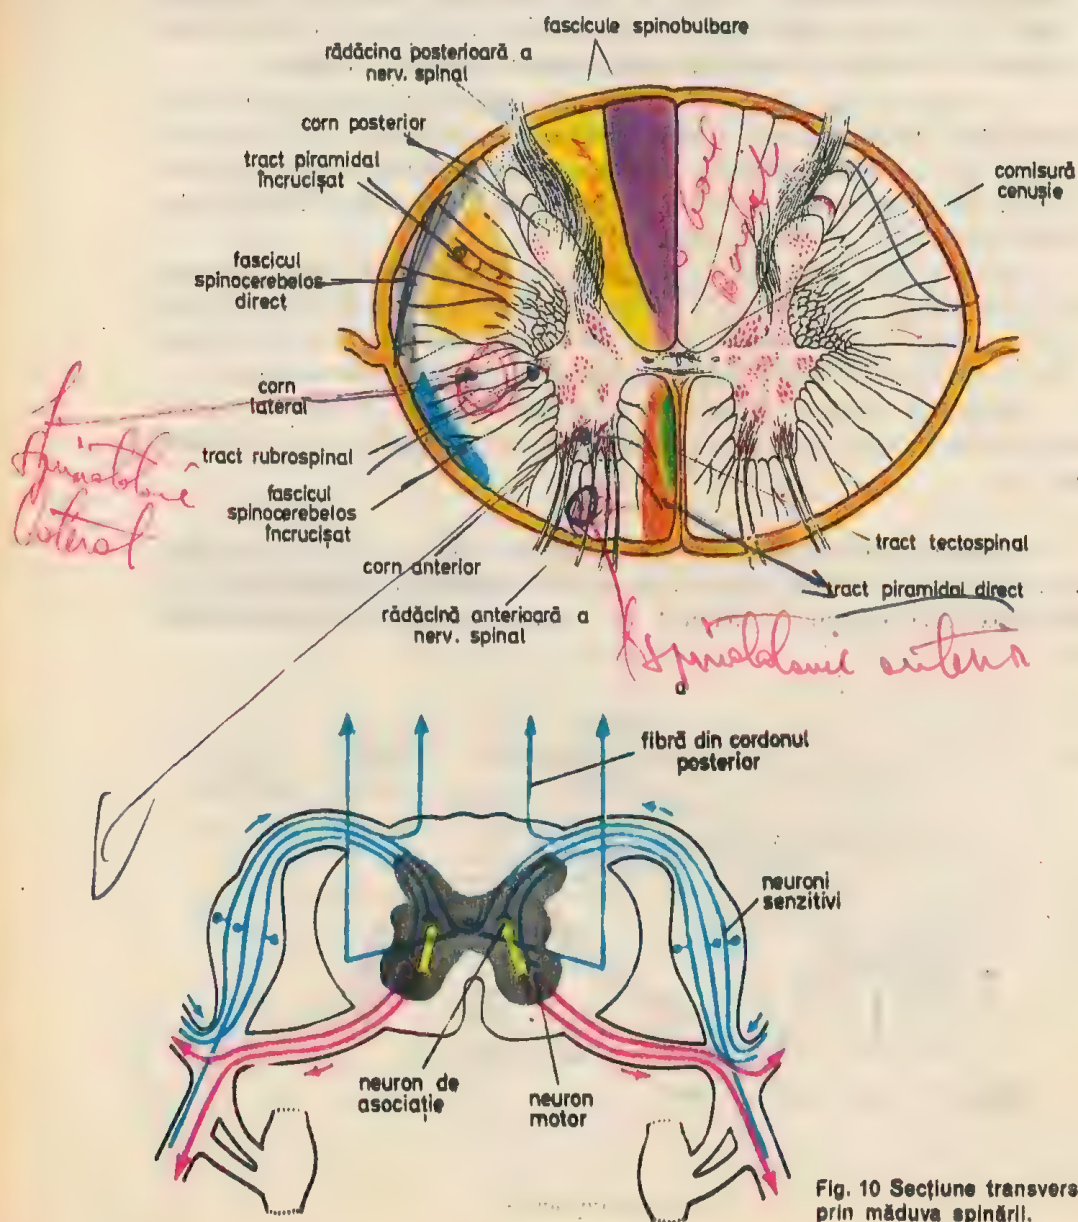 fascicule spinobulbare
rădăcina posterioară a
nerv. spinal
corn posterior
tract piramidal
încrucișat
comisură
cenușie
fascicul
spinocerebelos
direct
corn
lateral
tract rubrospinal
fascicul
spinocerebelos
încrucișat
corn anterior
rădăcină anterioară a
nerv. spinal
tract tectospinal
tract piramidal direct
a
fibră din cordonul
posterior
neuroni
senzitivi
neuron de
asociație
neuron
motor
Fig. 10 Secțiune transvers
prin măduva spinării.